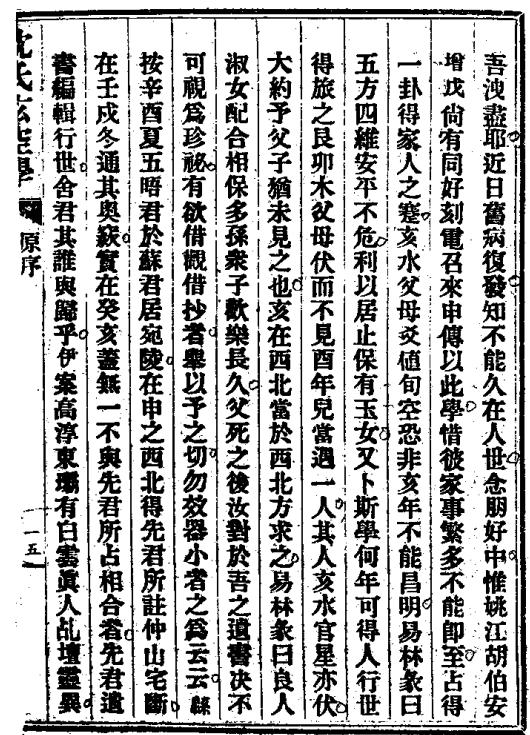 吾洩盡耶近日舊病復發知不能久在人世念朋好中惟姚江胡伯安
增戊尙有同好刻電召來申傳以此學惜彼家事繁多不能卽至占得
一卦得家人之蹇亥水父母爻値旬空恐非亥年不能昌明易林彖曰
五方四維安平不危利以居止保有玉女又卜斯學何年可得人行世
得旅之艮卯木父母伏而不見酉年兒當遇一人其人亥水官星亦伏
大約予父子猶未見之也亥在西北當於西北方求之易林彖曰良人
淑女配合相保多孫衆子歡樂長久父死之後汝對於吾之遺書决不
可視爲珍祕有欲借觀借抄者舉以予之切勿效器小者之爲云云緜
按辛酉夏五晤君於蘇君居宛陵在申之西北得先君所註仲山宅斷
在壬戌冬通其奧竅實在癸亥蓋無一不與先君所占相合者先君遺
書編輯行世舍君其誰與歸乎伊案高淳東壩有白雲眞人乩壇靈異
沈氏玄空學
原序
一五